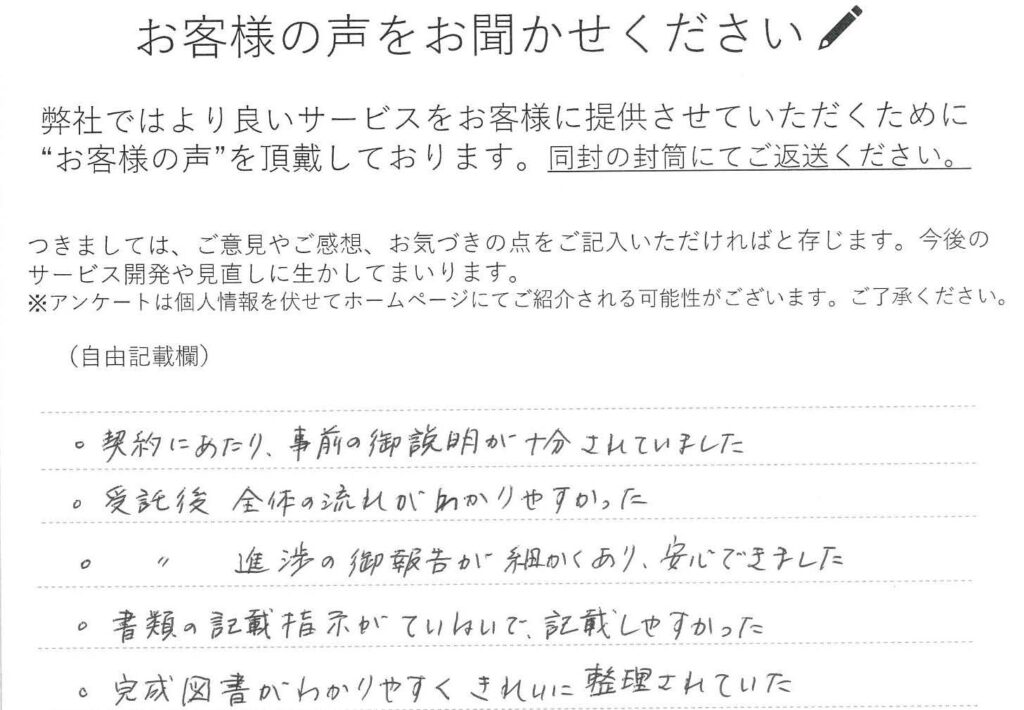 お客様の声をお聞かせください
弊社ではより良いサービスをお客様に提供させていただくために
“お客様の声”を頂戴しております。同封の封筒にてご返送ください。
つきましては、ご意見やご感想、お気づきの点をご記入いただければと存じます。今後の
サービス開発や見直しに生かしてまいります。
※アンケートは個人情報を伏せてホームページにてご紹介される可能性がございます。ご了承ください。
（自由記載欄）
○ 契約にあたり、事前の御説明が十分されていました
○ 受託後 全体の流れがわかりやすかった
○ 〃 進渉の御報告が細かくあり、安心できました
○ 書類の記載指示がていねいで、記載しやすかった
○ 完成図書がわかりやすくきれいに整理されていた